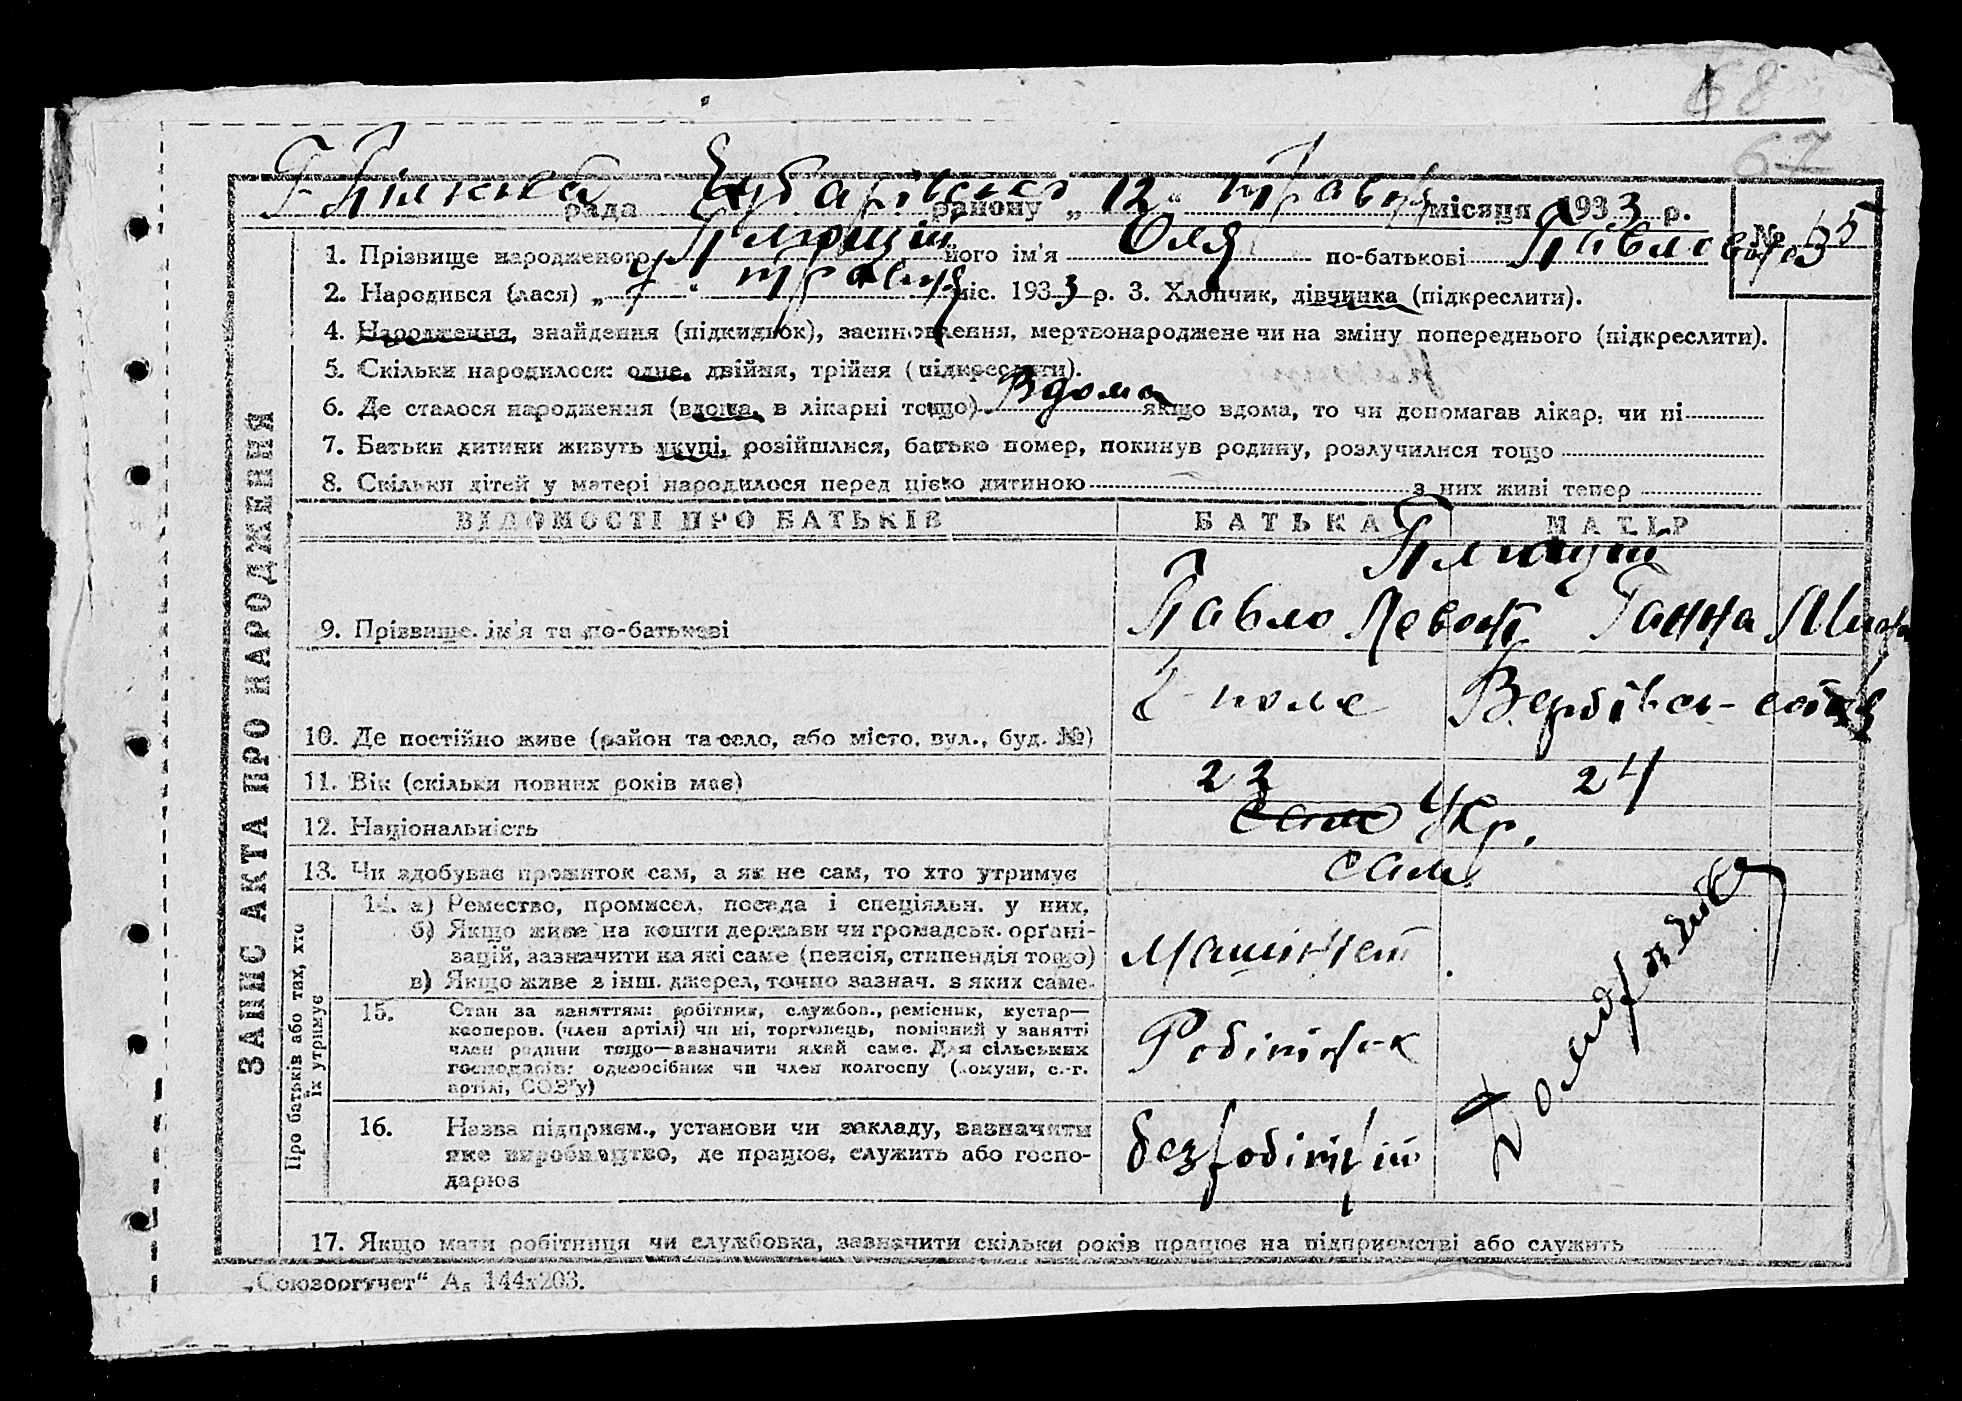 68
67
рада Чубарівського району „ 12 " травня місяця 1933 р.
№ 65
1. Прізвище народженого його ім'я Оля по-батькові Павловна
2. Народився (лася) „ 7 " травня міс. 1933 р. 3. Хлопчик, дівчинка (підкреслити).
4. Народження, знайдення (підкидьок), засиновлення, мертвонароджене чи на зміну попереднього (підкреслити).
5. Скільки народилося: одне, двійня, трійня (підкреслити).
6. Де сталося народження (вдома, в лікарні тощо) Вдома якщо вдома, то чи допомагав лікар, чи ні
7. Батьки дитини живуть укупі, розійшлися, батько помер, покинув родину, розлучилися тощо
8. Скільки дітей у матері народилося перед цією дитиною з них живі тепер
ЗАПИС АКТА ПРО НАРОДЖЕННЯ
ВІДОМОСТІ ПРО БАТЬКІВ БАТЬКА МАТІР
9. Прізвище, ім'я та по-батькові Павло Левонт Ганна
10. Де постійно живе (район та село, або місто, вул., буд. №) Г-поле
11. Вік (скільки повних років має) 23 24
12. Національність сам Укр.
13. Чи здобуває прожиток сам, а як не сам, то хто утримує сам
Про батьків або тих, хто їх утримує
14. а) Ремество, промисел, посада і спеціяльн. у них,
б) Якщо живе на кошти держави чи громадськ. організацій, зазначити на які саме (пенсія, стипендія тощо)
в) Якщо живе з інш. джерел, точно зазнач. з яких саме.
Машиніст
Домарпяйка
15. Стан за заняттям: робітник, службов., ремісник, кустар—
кооперов. (член артілі) чи ні, торговець, помічний у занятті
член родини тощо—зазначити який саме. Для сільських
господарів: одноосібник чи член колгоспу (комуни, с.-г.
артілі, СОЗ'у)
Робітник
16. Назва підприєм., установи чи закладу, зазначити
яке виробництво, де працює, служить або госпо-
дарює
безробітний
17. Якщо мати робітниця чи службовка, зазначити скільки років працює на підприємстві або служить
„Союзоргучет" А₅ 144х203.